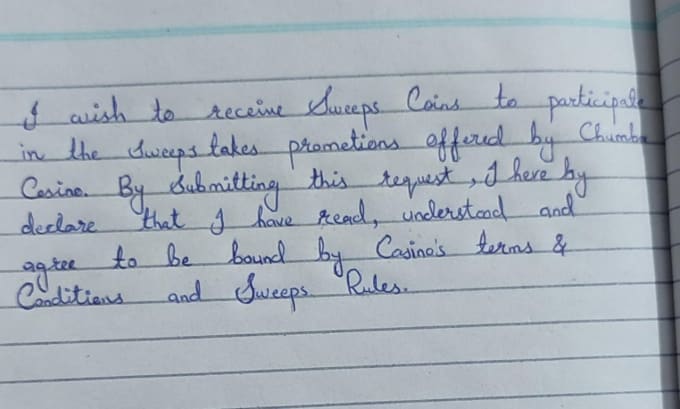 I wish to receive Sweeps Coins to participate
in the Sweeps takes prometions offered by Chumba
Casino. By Submitting this request, I here by
declare that I have read, understood and
agree to be bound by Casino's terms &
Conditions and Sweeps Rules.